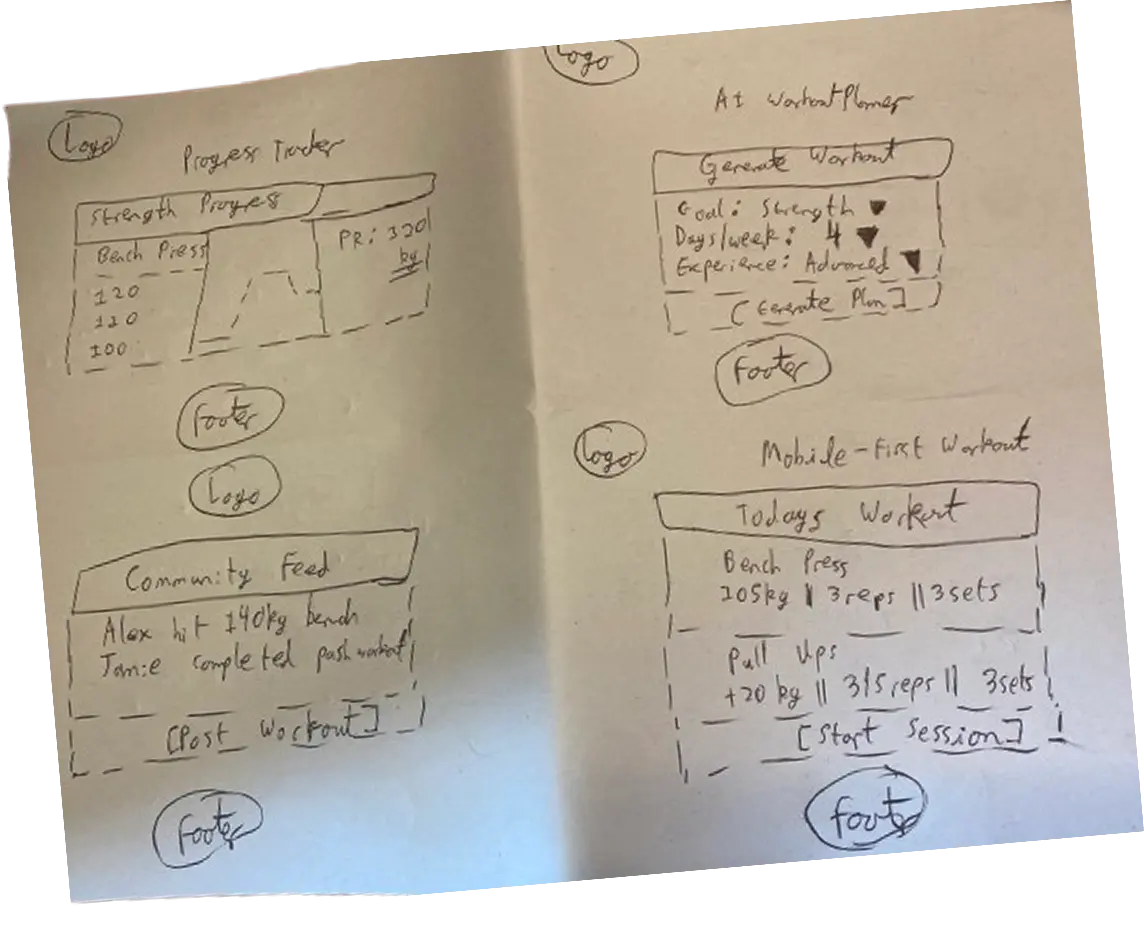 Logo
Progress Tracker
Strength Progress
Bench Press
120
110
100
PR: 120
kg
Footer
Logo
AI Workout Planner
Generate Workout
Goal: Strength
Days/week: 4
Experience: Advanced
[Generate Plan]
Footer
Logo
Community Feed
Alex hit 140kg bench
Jamie completed push workout
[Post Workout]
Footer
Logo
Mobile-First Workout
Todays Workout
Bench Press
105kg || 3reps || 3sets
Pull Ups
+20 kg || 3/5 reps || 3sets
[Start Session]
Footer